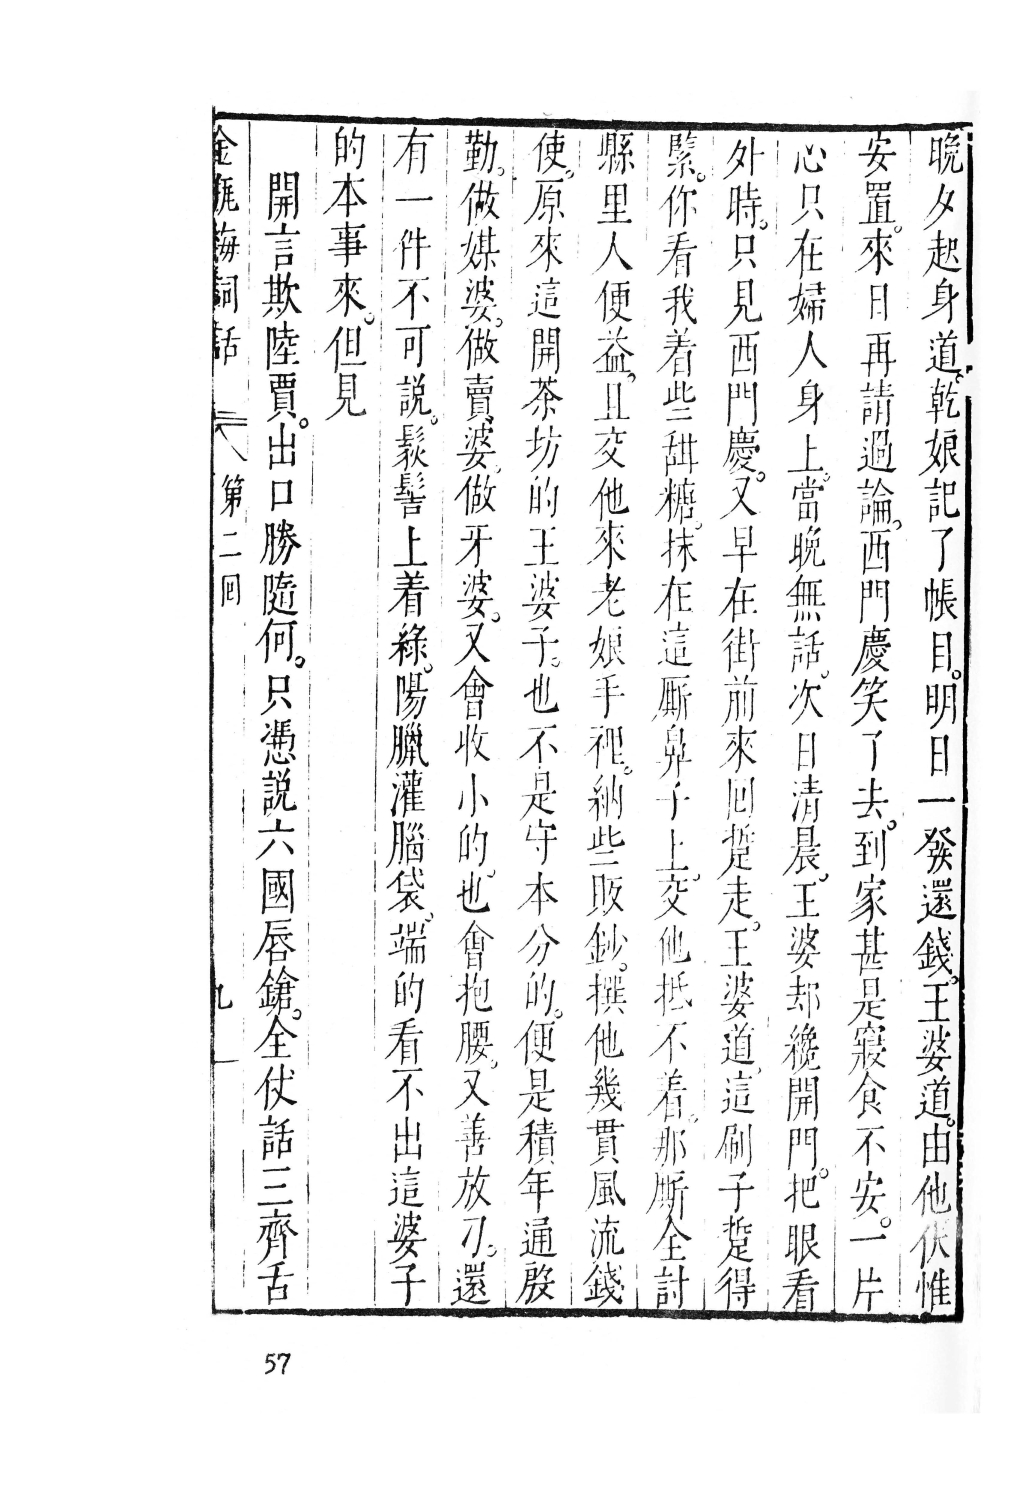 晚夕起身道。乾娘記了帳目。明日一發還錢。王婆道。由他伏惟
安置。來日再請過論。西門慶笑了去。到家甚是寢食不安。一片
心只在婦人身上。當晚無話。次日清晨。王婆却纔開門。把眼看
外時。只見西門慶。又早在街前來回踅走。王婆道。這刷子踅得
緊。你看我着些甜糖。抹在這厮鼻子上。交他抵不着。那厮全討
縣里人便益。且交他來老娘手裡。納些敗鈔。撰他幾貫風流錢
使。原來這開茶坊的王婆子。也不是守本分的。便是積年通殷
勤。做媒婆。做賣婆。做牙婆。又會收小的。也會抱腰。又善放刁。還
有一件不可說。髮髻上着綠。陽臘灌腦袋。端的看不出這婆子
的本事來。但見
開言欺陸賈。出口勝隨何。只憑說六國唇鎗。全仗話三齊舌
金瓶梅詞話 第二回 九
57